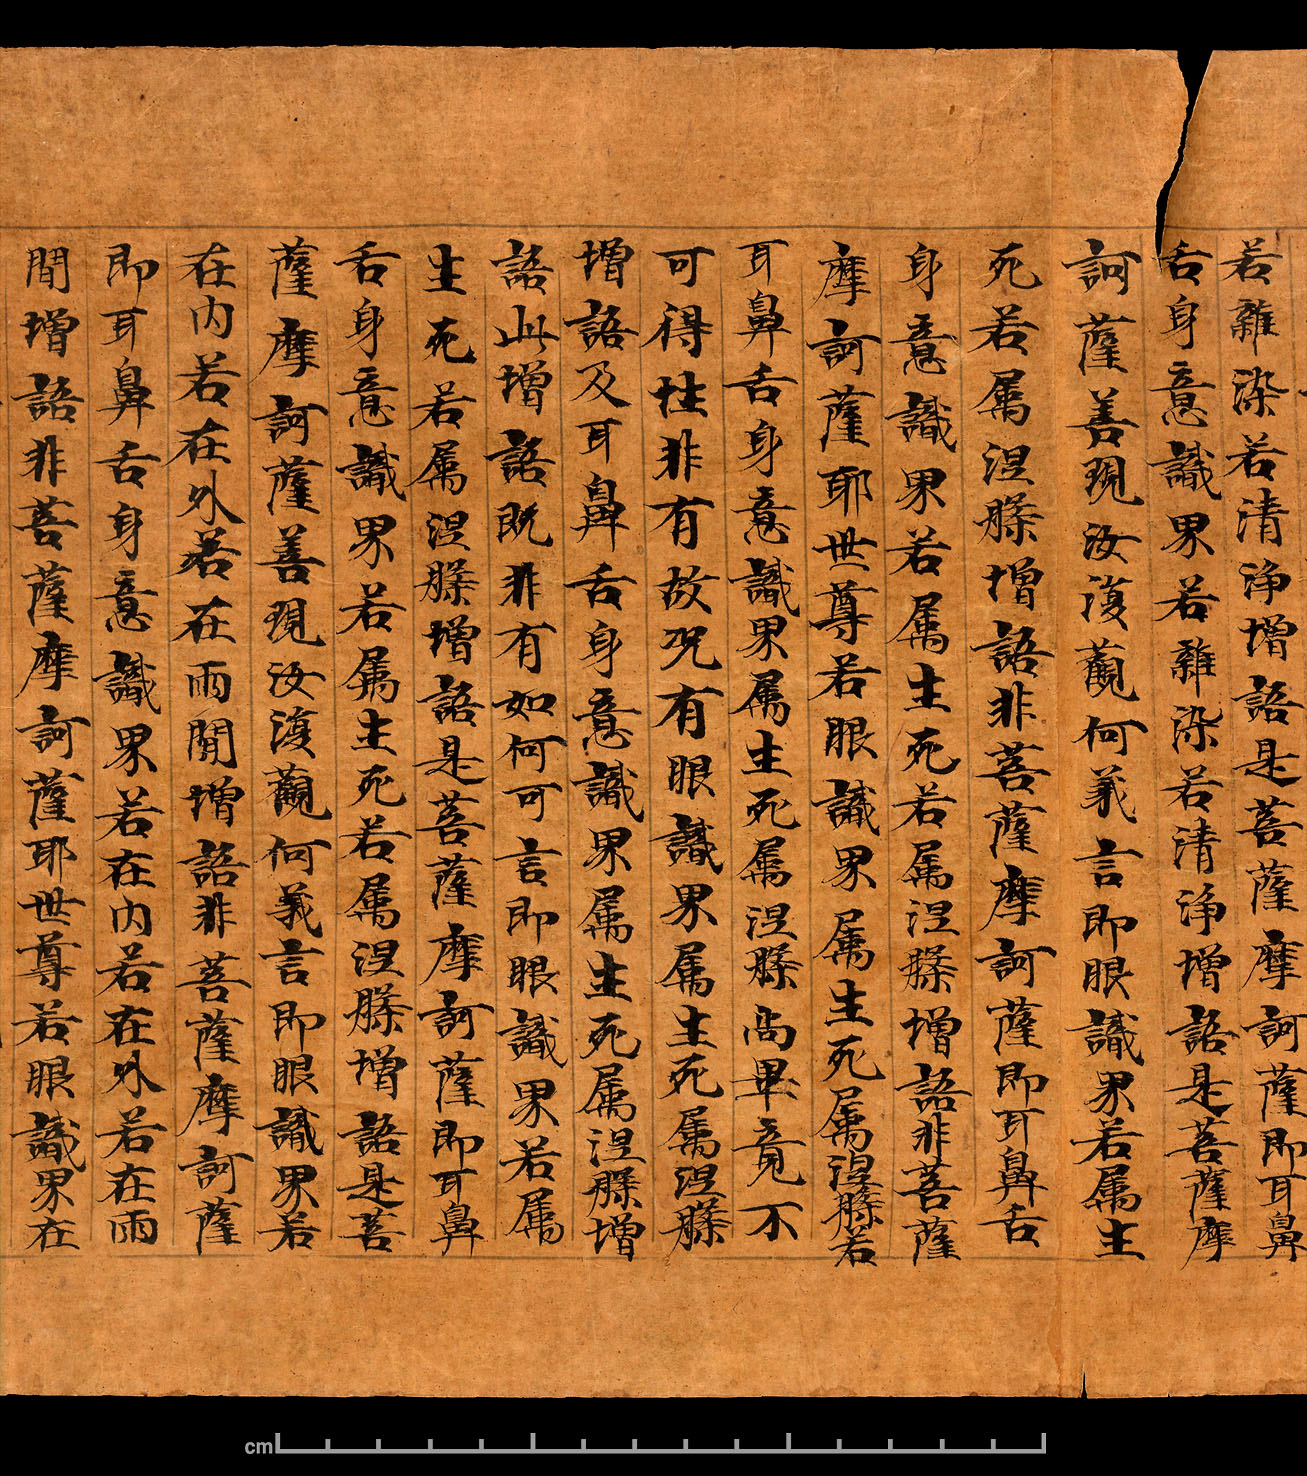 若雜染若清淨增語是菩薩摩訶薩即耳鼻
舌身意識界若雜染若清淨增語是菩薩摩
訶薩善現汝復觀何義言即眼識界若属生
死若属涅槃增語非菩薩摩訶薩即耳鼻舌
身意識界若属生死若属涅槃增語非菩薩
摩訶薩耶世尊若眼識界属生死属涅槃若
耳鼻舌身意識界属生死属涅槃尚畢竟不
可得性非有故况有眼識界属生死属涅槃
增語及耳鼻舌身意識界属生死属涅槃增
語此增語既非有如何可言即眼識界若属
生死若属涅槃增語是菩薩摩訶薩即耳鼻
舌身意識界若属生死若属涅槃增語是菩
薩摩訶薩善現汝復觀何義言即眼識界若
在内若在外若在兩間增語非菩薩摩訶薩
即耳鼻舌身意識界若在内若在外若在兩
間增語非菩薩摩訶薩耶世尊若眼識界在